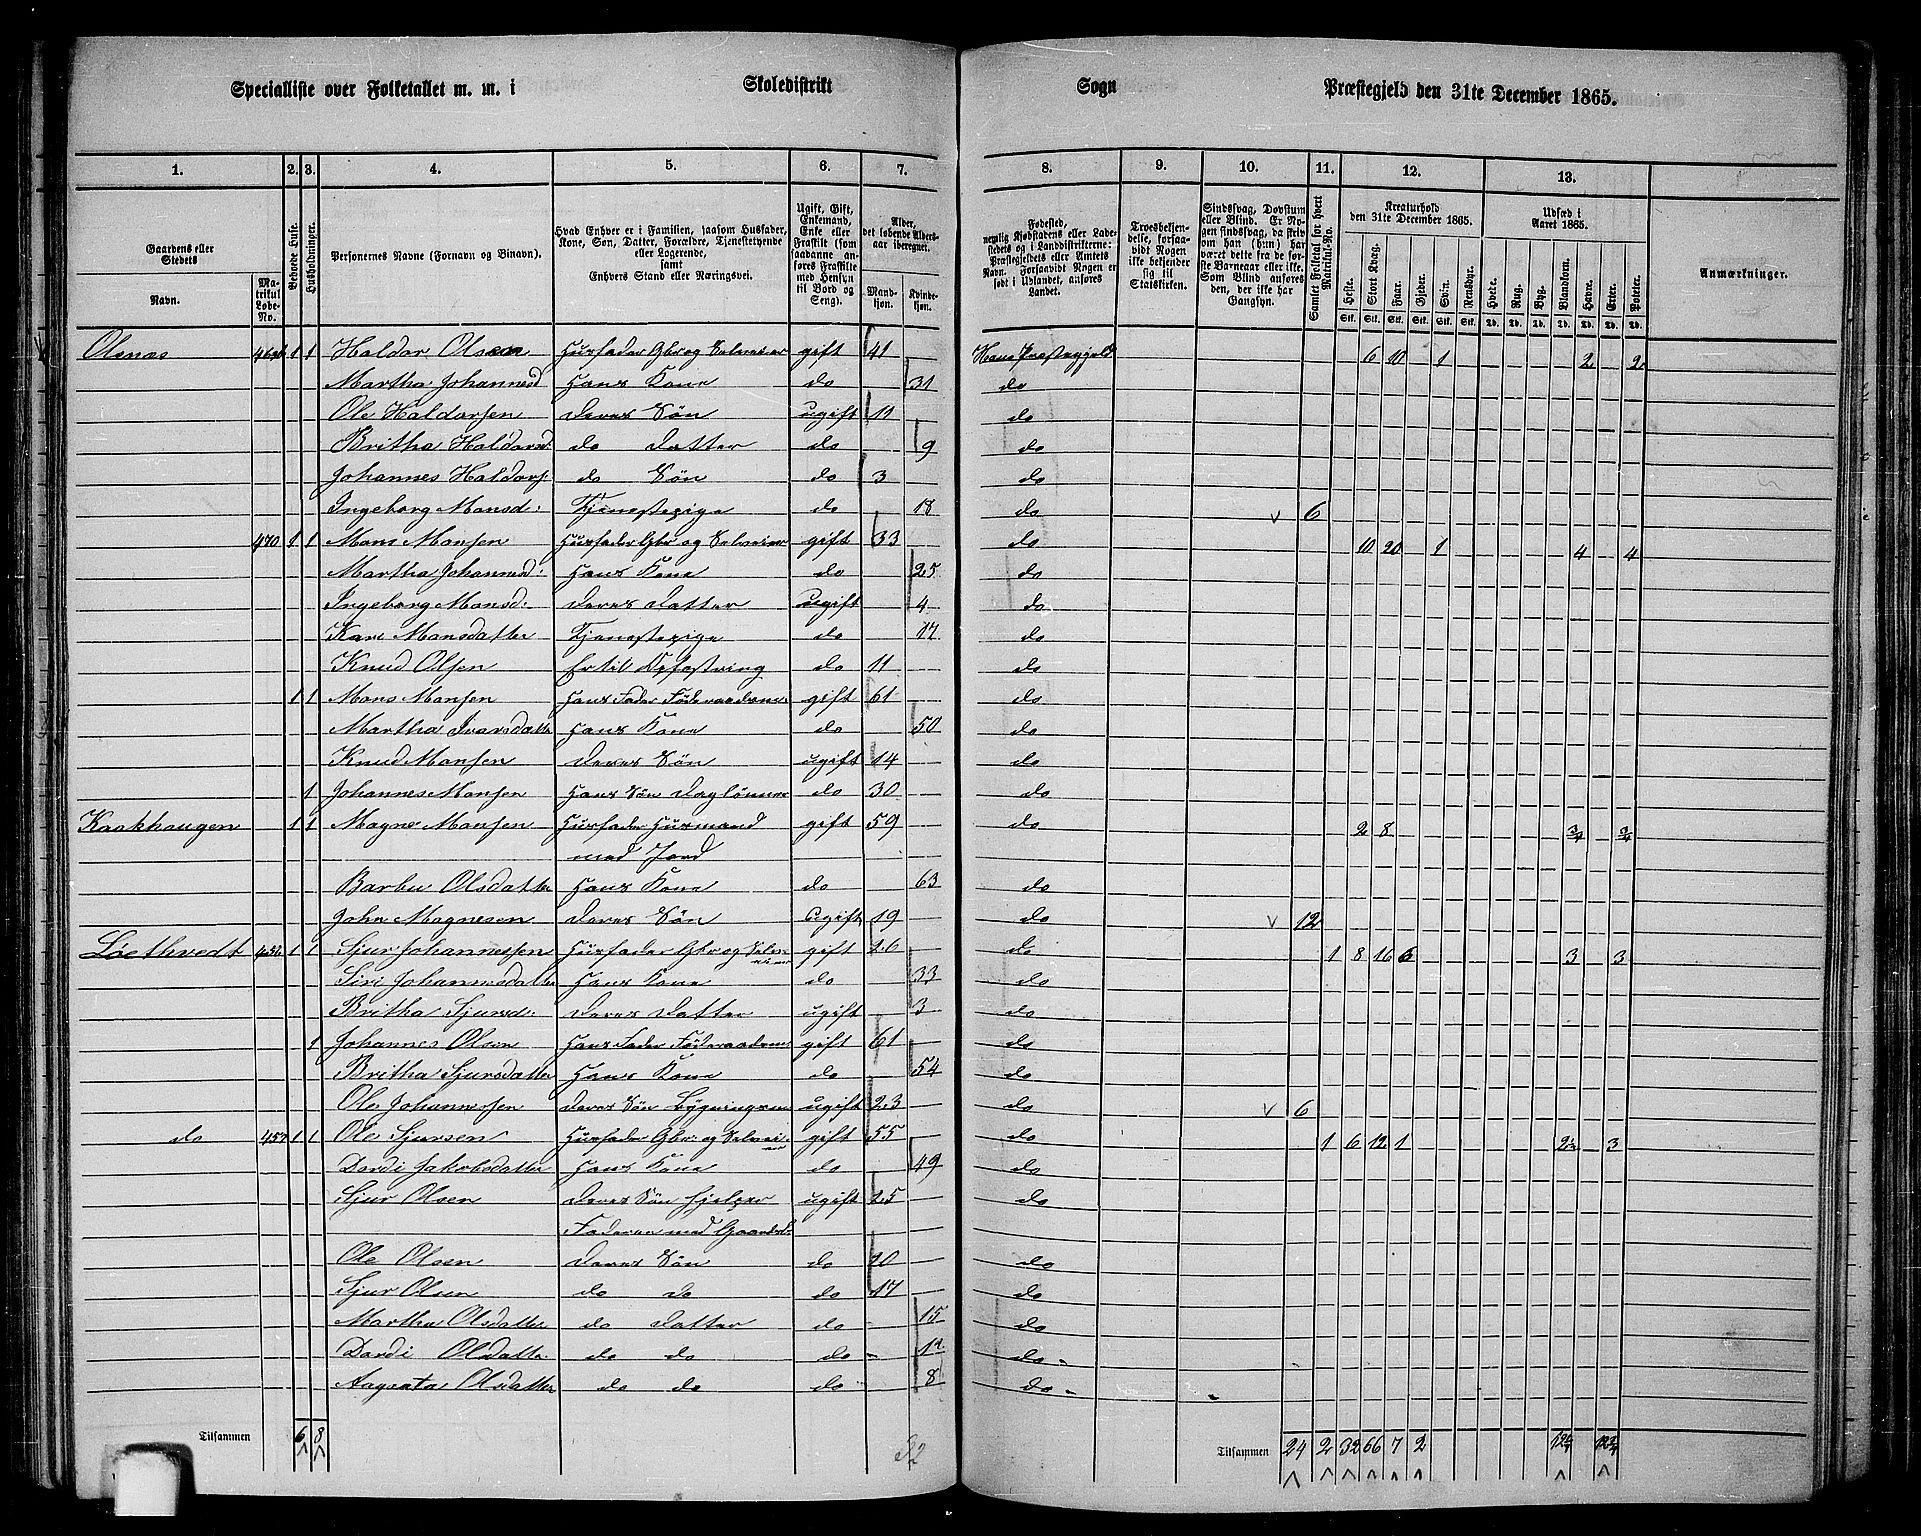 Specialliste over Folketallet m. m. i Skoledistrikt Sogn Præstegjeld den 31te December 1865.
1. 2. 3. 4. 5. 6. 7. 8. 9. 10. 11. 12. 13.
Gaardens eller Stedets Navn. Matrikul Løbe-No. Beboede Huse. Husholdninger. Personernes Navne (Fornavn og Binavn).
Hvad Enhver er i Familien, saasom Husfader, Kone, Søn, Datter, Forældre, Tjenestetyende eller Logerende, samt Enhvers Stand eller Næringsvei.
Ugift, Gift, Enkemand, Enke eller Fraskilt (som saadanne anføres Fraskilte med Hensyn til Bord og Seng).
Alder, det løbende Aldersaar iberegnet. Mandkjøn. Kvindekjøn.
Fødested, nemlig Kjøbstadens eller Ladestedets og i Landdistrikterne: Præstegjeldets eller Amtets Navn. Forsaavidt Nogen er født i Udlandet, anføres Landet.
Troesbekjendelse, forsaavidt Nogen ikke bekjender sig til Statskirken.
Sindssvag, Døvstum eller Blind. Er Nogen sindssvag, da skriv om han (hun) har været dette fra de første Barneaar eller ikke. Som Blind anføres den, der ikke har Gangsyn.
Samlet Folketal for hvert Matrikul-No.
Kreaturhold den 31te December 1865. Heste. Stort Kvæg. Faar. Gjeder. Svin. Rensdyr.
Udsæd i Aaret 1865. Hvede. Rug. Byg. Blandkorn. Havre. Erter. Poteter.
Anmærkninger.
Olsnæs 1 1 Haldor Olsen Husfader Gbr og Selveier gift 41 Hans Præstegjeld 6 10 1 2 2
Martha Johannesd Hans Kone do 31 do
Ole Haldorsen Deres Søn ugift 11 do
Britha Haldorsd: do Datter do 9 do
Johannes Haldors: do Søn do 3 do
Ingeborg Monsd: Tjenestepige do 18 do 6
470 1 1 Mons Monsen Husfader Gbr og Selveier gift 33 do 10 20 1 4 4
Martha Johannesd: Hans Kone do 25 do
Ingeborg Monsd: Deres Datter Ugift 4 do
Kari Monsdatter Tjenestepige do 17 do
Knud Olsen Er til Opfostring do 11 do
1 1 Mons Monsen Hans Fader Føderaadsm: gift 61 do
Martha Ivarsdatter Hans Kone do 50 do
Knud Monsen Deres Søn ugift 14 do
1 Johannes Monsen Hans Søn Dagleønner do 30 do
Kaakhaugen 1 1 Magne Monsen Husfader Husmand gift 59 do 2 8 3/4 3/4
med Jord
Barbu Olsdatter Hans Kone do 63 do
John Magnesen Deres Søn Ugift 19 do 12
Løethvedt 456 1 1 Sjur Johannessen Husfader Gbr og Selveier gift 26 do 1 8 16 6 3 3
Siri Johannesdatter Hans Kone do 33 do
Britha Sjursd: Deres Datter ugift 3 do
1 Johannes Olsen Hans Fader Føderaadsm: gift 61 do
Britha Sjursdatter Hans Kone do 54 do
Ole Johannessen Deres Søn Bygningsm ugift 23 do 6
do 457 1 1 Ole Sjursen Husfader Gbr: og Selveier gift 55 do 1 6 12 1 2½ 3
Dordi Jakobsdatter Hans Kone do 49 do
Sjur Olsen Deres Søn hjelper ugift 25 do
Faderen med Gaardsb:
Ole Olsen Deres Søn do 20 do
Sjur Olsen do do do 17 do
Martha Olsdatter do Datter do 15 do
Dordi Olsdatter do do do 12 do
Aagaata Olsdatter do do do 8 do
Tilsammen 6 8 32 Tilsammen 24 2 32 66 7 2